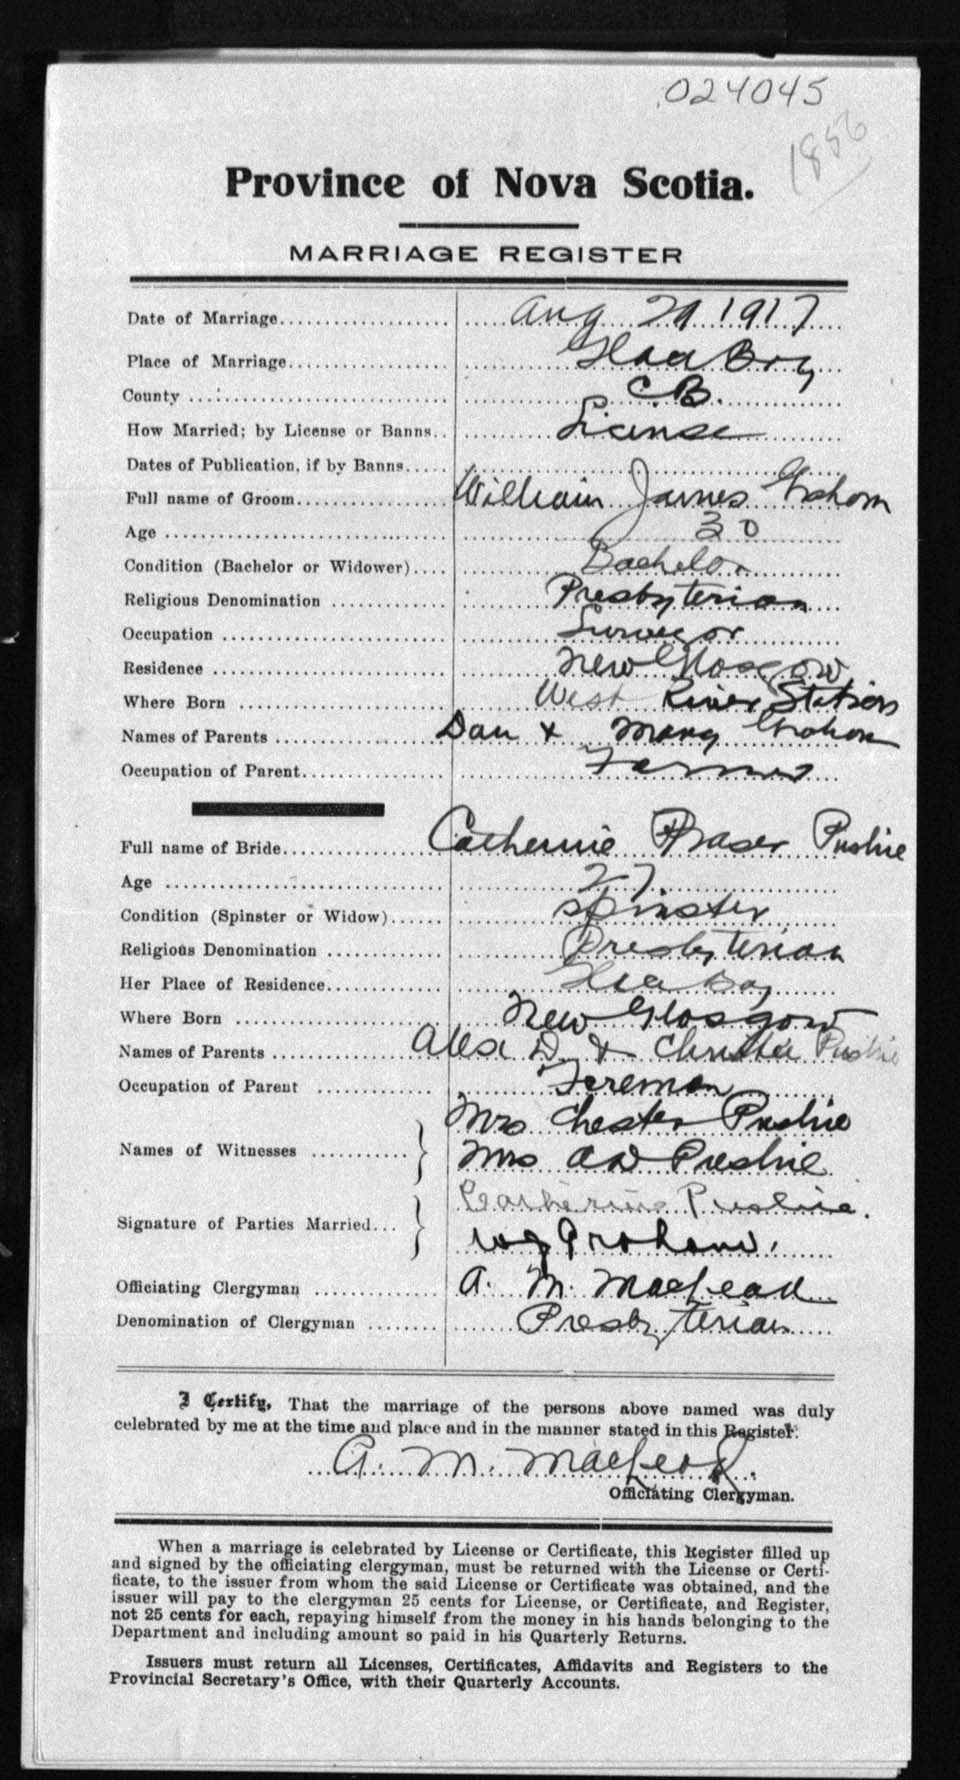 024045
1856
Province of Nova Scotia.
MARRIAGE REGISTER
Date of Marriage Aug 29 1917
Place of Marriage Glace Bay
County C.B.
How Married; by License or Banns License
Dates of Publication, if by Banns
Full name of Groom William James Graham
Age 30
Condition (Bachelor or Widower) Bachelor
Religious Denomination Presbyterian
Occupation Surveyor
Residence New Glasgow
Where Born West River Station
Names of Parents Dan & Mary Graham
Occupation of Parent Farmer
Full name of Bride Catherine Fraser Pushie
Age 27
Condition (Spinster or Widow) Spinster
Religious Denomination Presbyterian
Her Place of Residence Glace Bay
Where Born New Glasgow
Names of Parents Alex D. & Christie Pushie
Occupation of Parent Foreman
Names of Witnesses Mrs Chester Pushie
Mrs A D Pushie
Signature of Parties Married Catherine Pushie.
W J Graham.
Officiating Clergyman A. M. MacLeod
Denomination of Clergyman Presbyterian
I Certify, That the marriage of the persons above named was duly
celebrated by me at the time and place and in the manner stated in this Register.
A. M. MacLeod.
Officiating Clergyman.
When a marriage is celebrated by License or Certificate, this Register filled up
and signed by the officiating clergyman, must be returned with the License or Certi-
ficate, to the issuer from whom the said License or Certificate was obtained, and the
issuer will pay to the clergyman 25 cents for License, or Certificate, and Register,
not 25 cents for each, repaying himself from the money in his hands belonging to the
Department and including amount so paid in his Quarterly Returns.
Issuers must return all Licenses, Certificates, Affidavits and Registers to the
Provincial Secretary's Office, with their Quarterly Accounts.